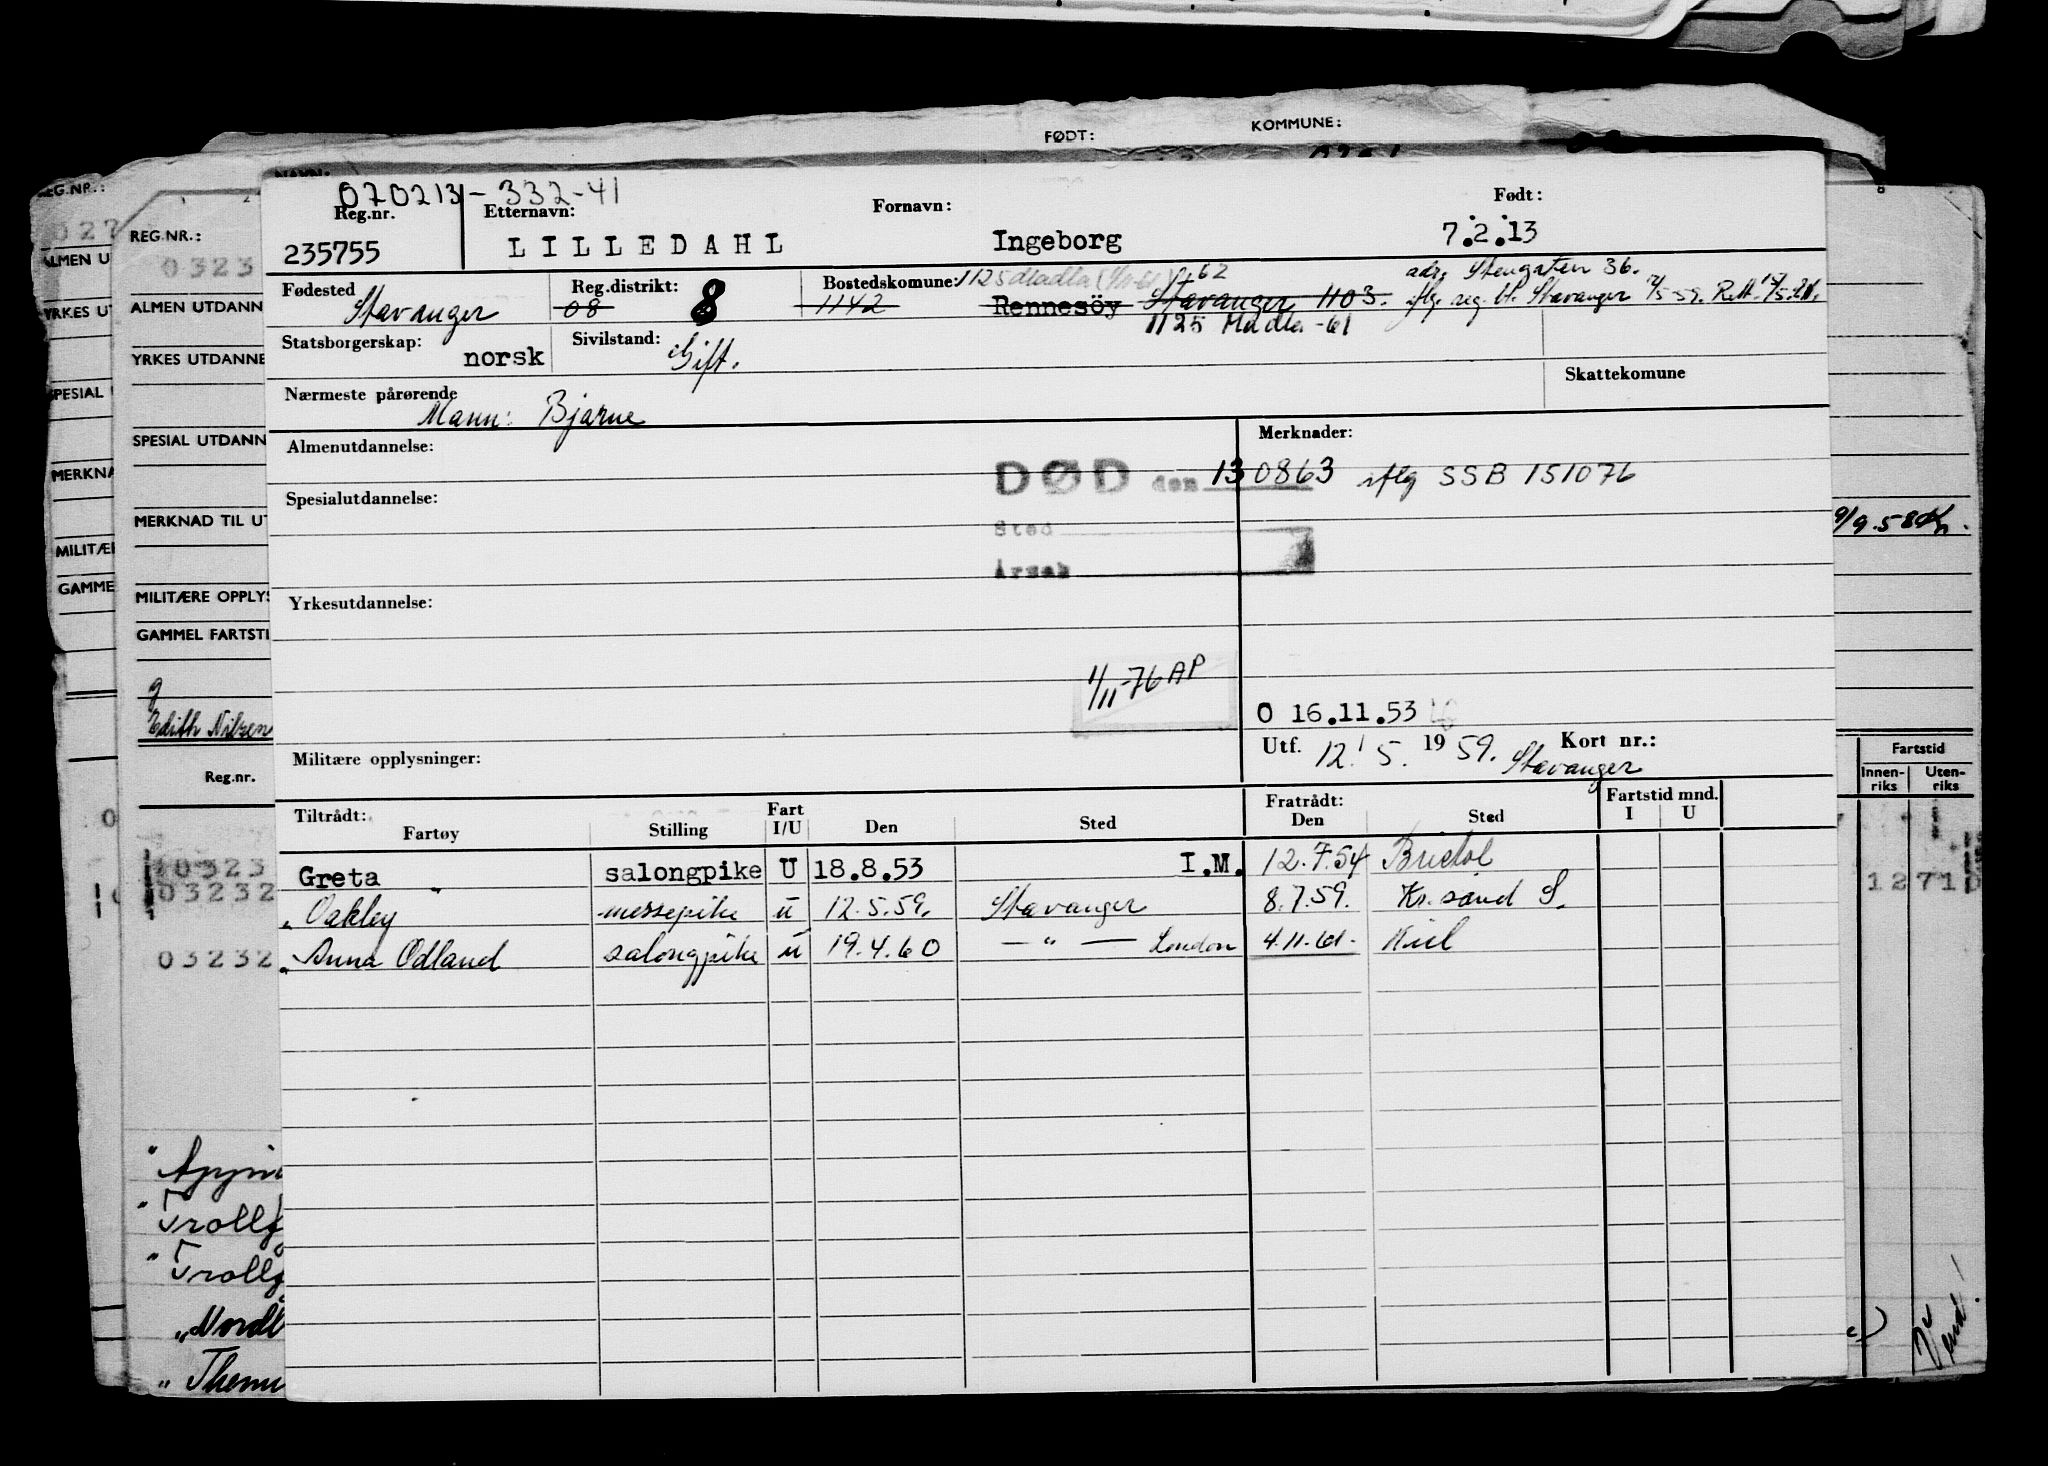 FØDT: KOMMUNE:
REG.NR.:
REG.NR.:
0323
ALMEN UTDANN
YRKES UTDANNE
SPESIAL UTDANN
MERKNAD TIL UT
MILITÆRE OPPLYS
GAMMEL FARTSTI
Edith Nilsen
Reg.nr.
070213-332-41
Reg.nr. Etternavn: Fornavn: Født:
235755 LILLEDAHL Ingeborg 7.2.13
Fødested Reg.distrikt: Bostedskomune: 1125 Madla 62 adr. Stengaten 36.
Stavanger 08 8 1142 Rennesöy Stavanger 1103. iflg. reg. bl. Stavanger
1125 Madla -61
Statsborgerskap: norsk Sivilstand: Gift.
Skattekomune
Nærmeste pårørende
Mann: Bjarne
Almenutdannelse: Merknader:
DØD den 130863 iflg SSB 151076
Spesialutdannelse:
Sted
Årsak
Yrkesutdannelse:
1/11-76 AP
O 16.11.53
Utf. 12.5. 1959. Kort nr.:
Stavanger
Militære opplysninger:
Tiltrådt: Fart Fratrådt: Fartstid mnd.
Fartøy Stilling I/U Den Sted Den Sted I U
Greta salongpike U 18.8.53 I.M. 12.7.54 Bristol
" Oakley messepike u 12.5.59. Stavanger 8.7.59. Kr.sand S.
" Anna Odland salongpike u 19.4.60 — " — London 4.11.61. Kiel
Fartstid
Innen-riks Uten-riks
1271
03232
03232
" Trollf
" Trollf
" Nordl